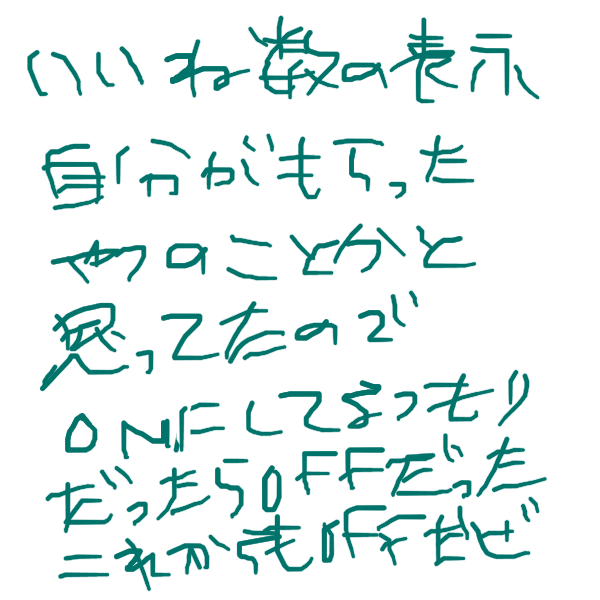 いいね数の表示
自分がもらった
やつのことかと
思ってたので
ONにしてるつもり
だったらOFFだった
これからもOFFだぜ